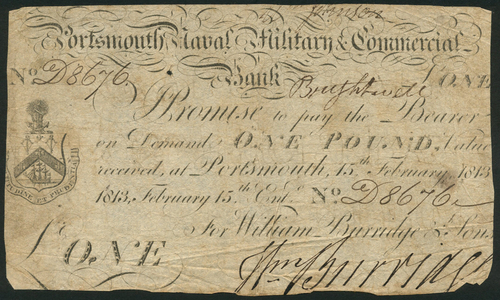 Johnson
Portsmouth Naval Military & Commercial
Bank
No. D8676 Brightwell £ ONE
I Promise to pay the Bearer
on Demand ONE POUND, Value
received, at Portsmouth, 15th February 1813
1813, February 15th Entd. No. D8676
For William Burridge & Son
£ ONE
Wm Burridge